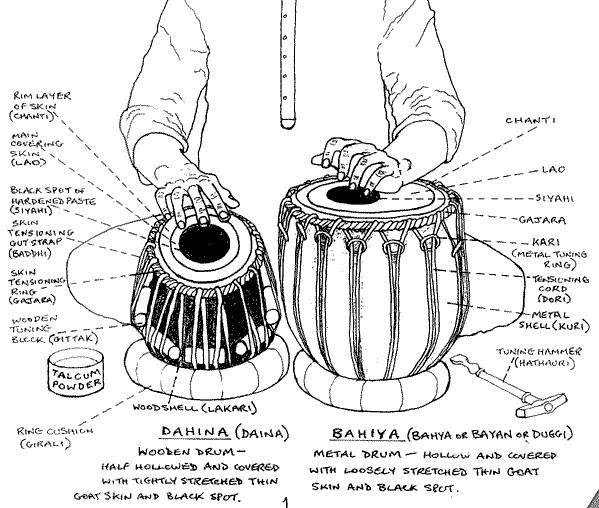 RIM LAYER
OF SKIN
(CHANTI)
MAIN
COVERING
SKIN
(LAO)
BLACK SPOT OF
HARDENED PASTE
(SIYAHI)
SKIN
TENSIONING
GUT STRAP
(BADDHI)
SKIN
TENSIONING
RING
(GAJARA)
WOODEN
TUNING
BLOCK (GITTAK)
TALCUM
POWDER
RING CUSHION
(GIRALI)
WOODSHELL (LAKARI)
CHANTI
LAO
SIYAHI
GAJARA
KARI
(METAL TUNING
RING)
TENSIONING
CORD
(DORI)
METAL
SHELL (KURI)
TUNING HAMMER
(HATHAURI)
DAHINA (DAINA)
WOODEN DRUM —
HALF HOLLOWED AND COVERED
WITH TIGHTLY STRETCHED THIN
GOAT SKIN AND BLACK SPOT.
BAHIYA (BAHYA OR BAYAN OR DUGGI)
METAL DRUM — HOLLOW AND COVERED
WITH LOOSELY STRETCHED THIN GOAT
SKIN AND BLACK SPOT.
1